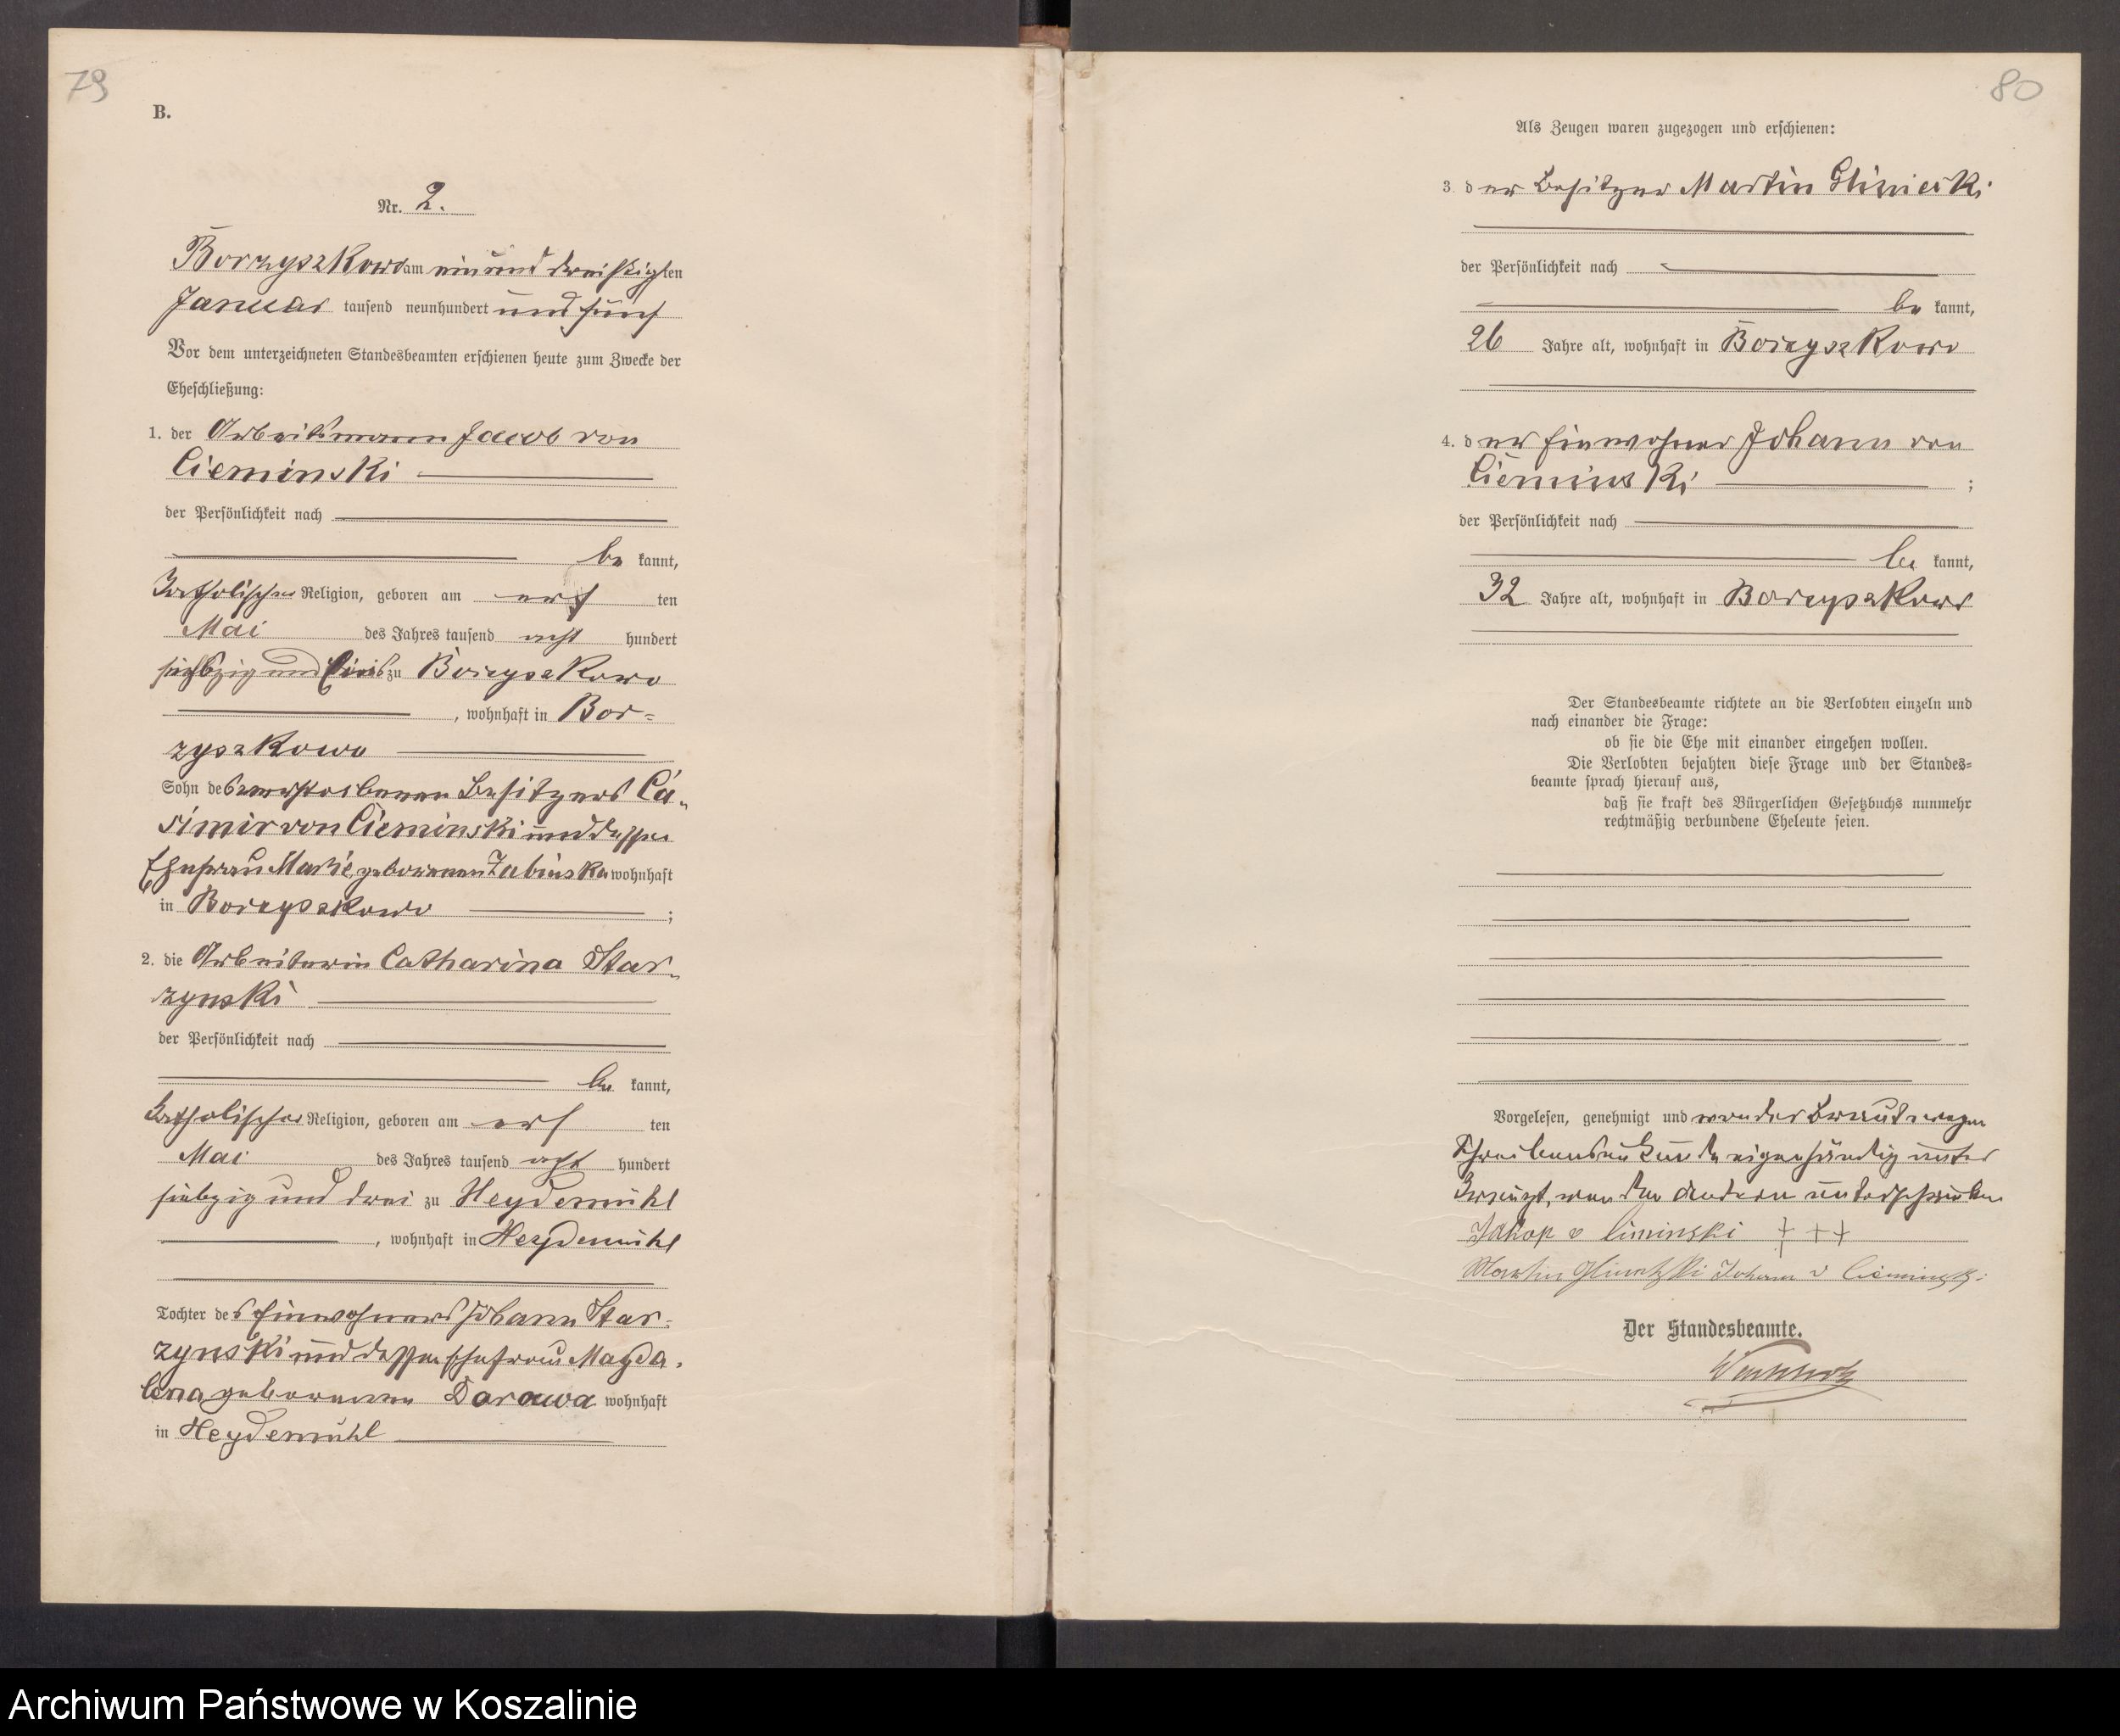 79
B.
Nr. 2.
Borzyszkowo am ein und dreißigten
Januar tausend neunhundert und fünf
Vor dem unterzeichneten Standesbeamten erschienen heute zum Zwecke der
Eheschließung:
1. der Arbeitsmann Jacob von
Cieminski
der Persönlichkeit nach
be kannt,
katholischer Religion, geboren am ten
Mai des Jahres tausend acht hundert
siebzig und Eins zu Borzyszkowo
, wohnhaft in Bor-
zyszkowo
Sohn des verstorbenen Besitzers Ca-
simir von Cieminski und dessen
Ehefrau Marie geborenen wohnhaft
in Borzyszkowo ;
2. die Arbeiterin Catharina Star-
zynski
der Persönlichkeit nach
be kannt,
katholischer Religion, geboren am ten
Mai des Jahres tausend acht hundert
siebzig und drei zu Heydemühl
, wohnhaft in Heydemühl
Tochter des Einwohners Johann Star-
zynski und dessen Ehefrau Magda-
lena geborenen wohnhaft
in Heydemühl
80
Als Zeugen waren zugezogen und erschienen:
3. der Besitzer Martin Gliniecki
der Persönlichkeit nach
be kannt,
26 Jahre alt, wohnhaft in Borzyszkowo
4. der Einwohner Johann von
Cieminski ;
der Persönlichkeit nach
be kannt,
32 Jahre alt, wohnhaft in Borzyszkowo
Der Standesbeamte richtete an die Verlobten einzeln und
nach einander die Frage:
ob sie die Ehe mit einander eingehen wollen.
Die Verlobten bejahten diese Frage und der Standes-
beamte sprach hierauf aus,
daß sie kraft des Bürgerlichen Gesetzbuchs nunmehr
rechtmäßig verbundene Eheleute seien.
Vorgelesen, genehmigt und von der Braut wegen
Schreibensunkunde eigenhändig unter
kreuzt, von den andern unterschrieben
Jakop v Ciminski + + +
Martin Johann v Cieminski
Der Standesbeamte.
Archiwum Państwowe w Koszalinie